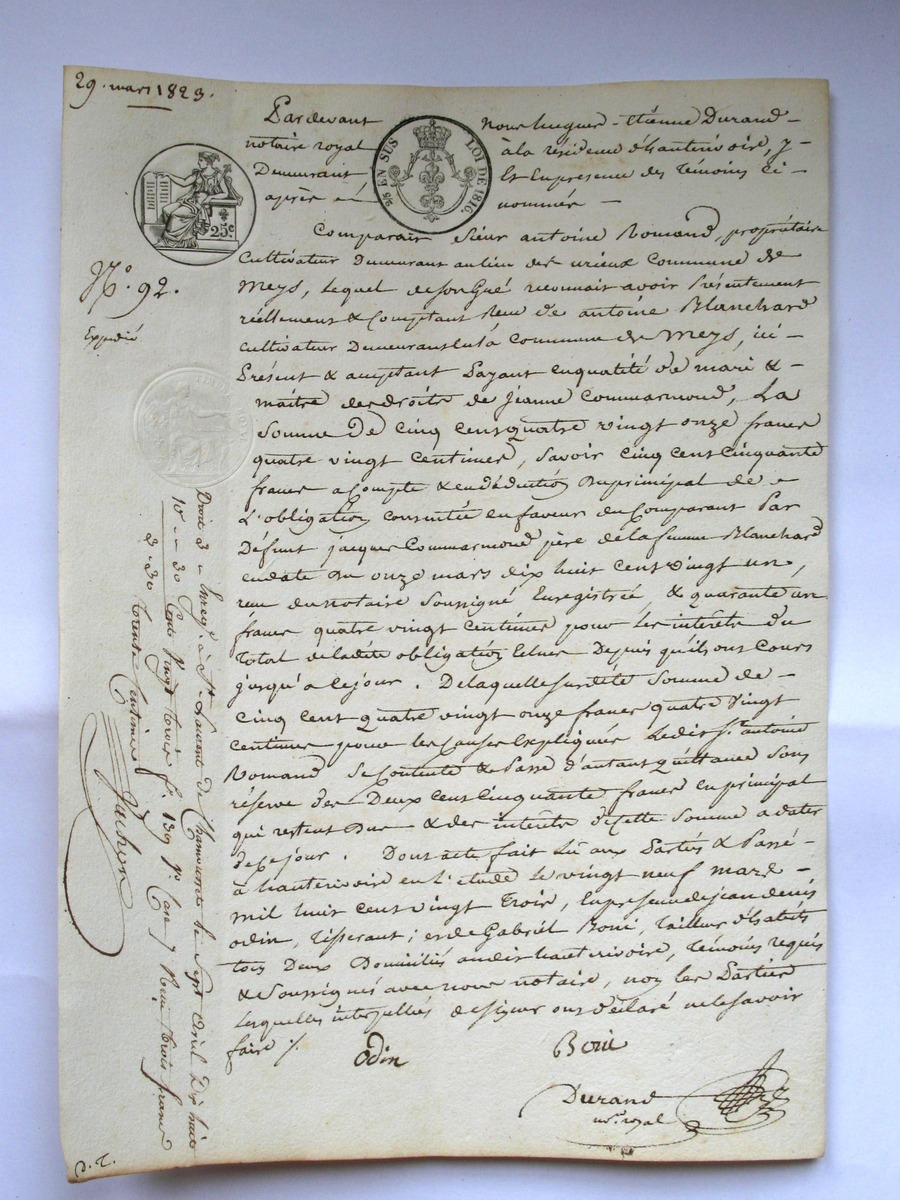 29. mars 1823.
Pardevant Nous hugues-étienne Durand-
notaire royal à la résidence d'hauterivoire, y-
Demeurant Et en présence des témoins ci-
après nommés -
25 EN SUS LOI DE 1816.
25c
N°. 92.
Expédié
Comparait Sieur antoine Romand, propriétaire
Cultivateur Demeurant au lieu des Commune de
Meys, lequel de son gré reconnait avoir Présentement
réellement & Comptant Reçu de antoine Blanchard
Cultivateur Demeurant Commune de Meys, ici-
Présent & acceptant Payant en qualité de mari &-
maitre des droits de jeanne Commarmond, La
Somme De Cinq cent quatre vingt onze francs
quatre vingt centimes, Savoir Cinq Cent Cinquante
francs a Compte & en déduction Du principal de
L'obligation Consentie en faveur du Comparant Par
Défunt jacques Commarmond père de la femme Blanchard
en date Du onze mars dix huit cent vingt un,
reçu du notaire Soussigné Enregistrée, & quarante un
francs quatre vingt Centimes pour les interêts du
Total de ladite obligation Echus Depuis qu'ils ont Cours
jusqu'a ce jour. De laquelle Somme de-
Cinq cent quatre vingt onze francs quatre Vingt
Centimes pour les Causes Expliquées Ledit Sr. antoine
Romand Se Contente & Passe d'autant quittance Sous
réserve des Deux cent Cinquante francs en principal
qui restent Dus & des interêts de cette Somme a dater
de ce jour. Dont acte fait Lu aux Parties & Passé-
à hauterivoire en L'étude le vingt neuf mars-
Mil huit cent vingt Trois, En présence de jean denis
odin, Tisserant; et de Gabriel Boni, tailleur d'habits
tous Deux Domiciliés audit hauterivoire, témoins requis
& Soussignés avec nous notaire, non les Parties
Lesquelles interpellées de signer ont déclaré ne le savoir
faire ./.
Odin Boni
Durand
no.re royal
Droit 3 - Enreg.é à St. Laurent de Chamousset le Sept avril Dix huit
Cent Vingt trois f.o 139 r.o Case 7 Reçu trois francs
trente Centimes
D. T.